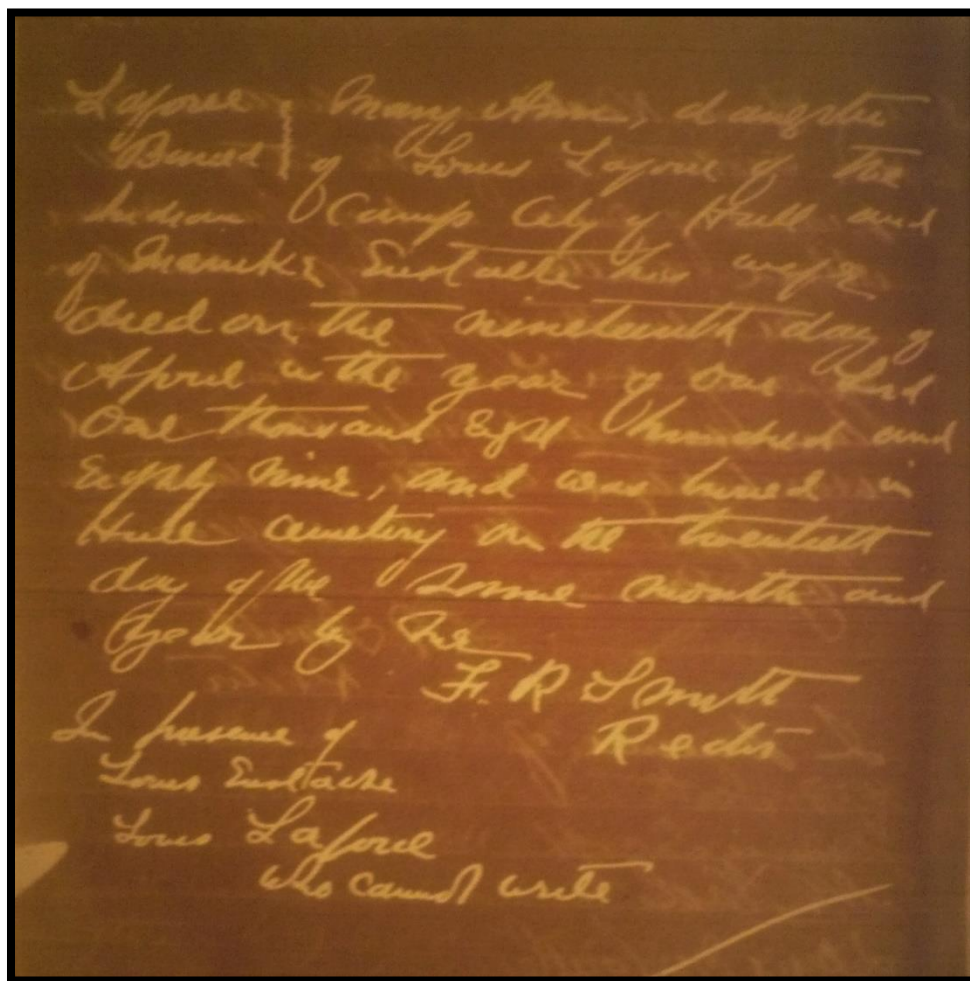 Mary Ann, daughter
Buried of Louis of the
Indian Camp City of Hull and
of his wife
died on the nineteenth day of
April in the year of our Lord
One thousand Eight hundred and
Eighty nine, and was buried in
Hull cemetery on the twentieth
day of the same month and
year by me
F. R Smith
In presence of
Louis Eustache
Louis
who cannot write